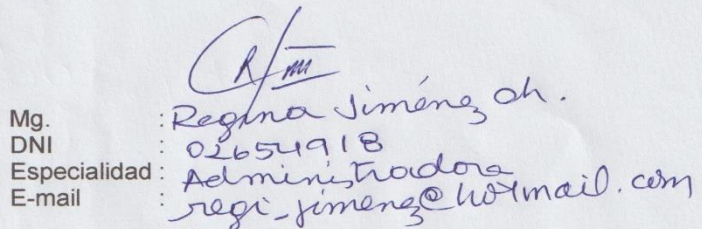 Mg. : Regina Jiménez Ch.
DNI : 02654918
Especialidad : Administradora
E-mail : regi_jimenez@hotmail.com